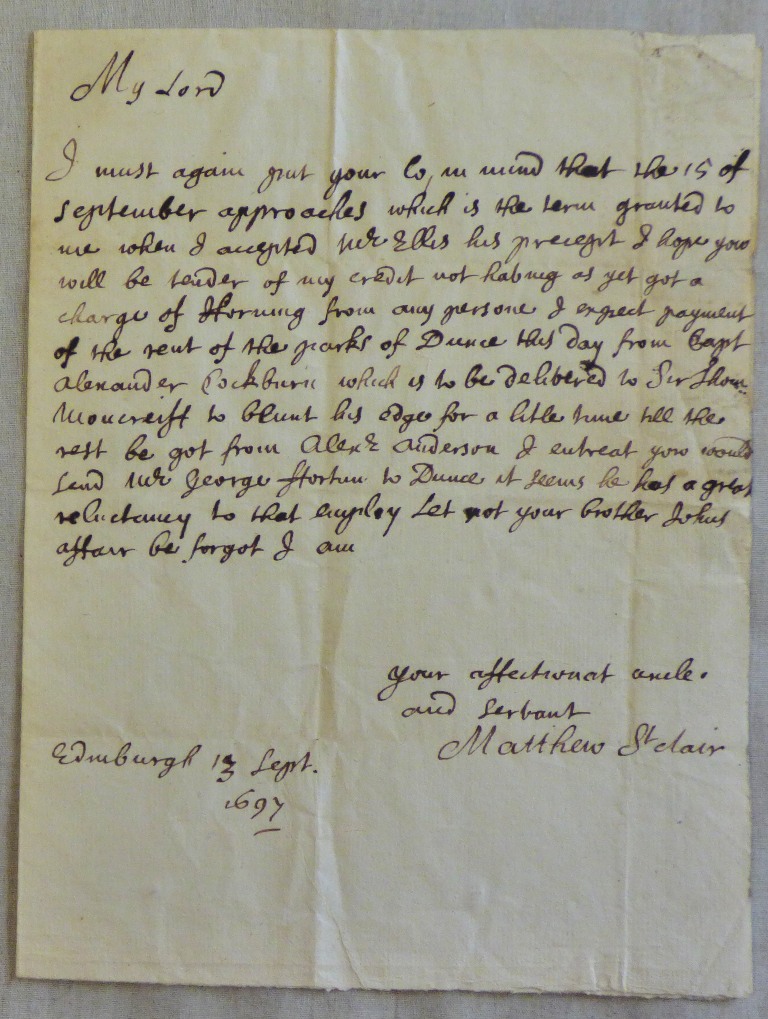 My Lord
I must again put your Lo, in mind that the 15 of
september approaches which is the term granted to
me when I accepted Mr Ellis his precept I hope yow
will be tender of my credit not having as yet got a
charge of Horning from any persone I expect payment
of the rent of the parks of Dunce this day from Capt
Alexander Cockburn which is to be delivered to Sir Thom:
Moncreiff to blunt his edge for a litle time till the
rest be got from Alexr Anderson I entreat yow would
send Mr George Horton to Dunce it seems he has a great
reluctancy to that employ Let not your brother Johns
affair be forgot I am
your affectionat uncle.
and servant
Matthew St clair
Edinburgh 13 Sept.
1697